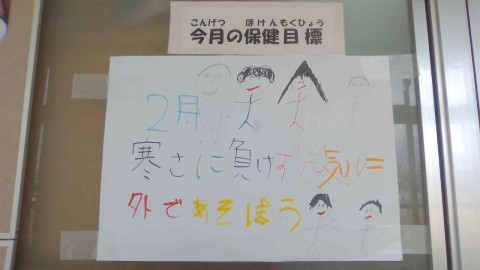 こんげつ ほけんもくひょう
今月の保健目標
2月
寒さに負けず元気に
外であそぼう